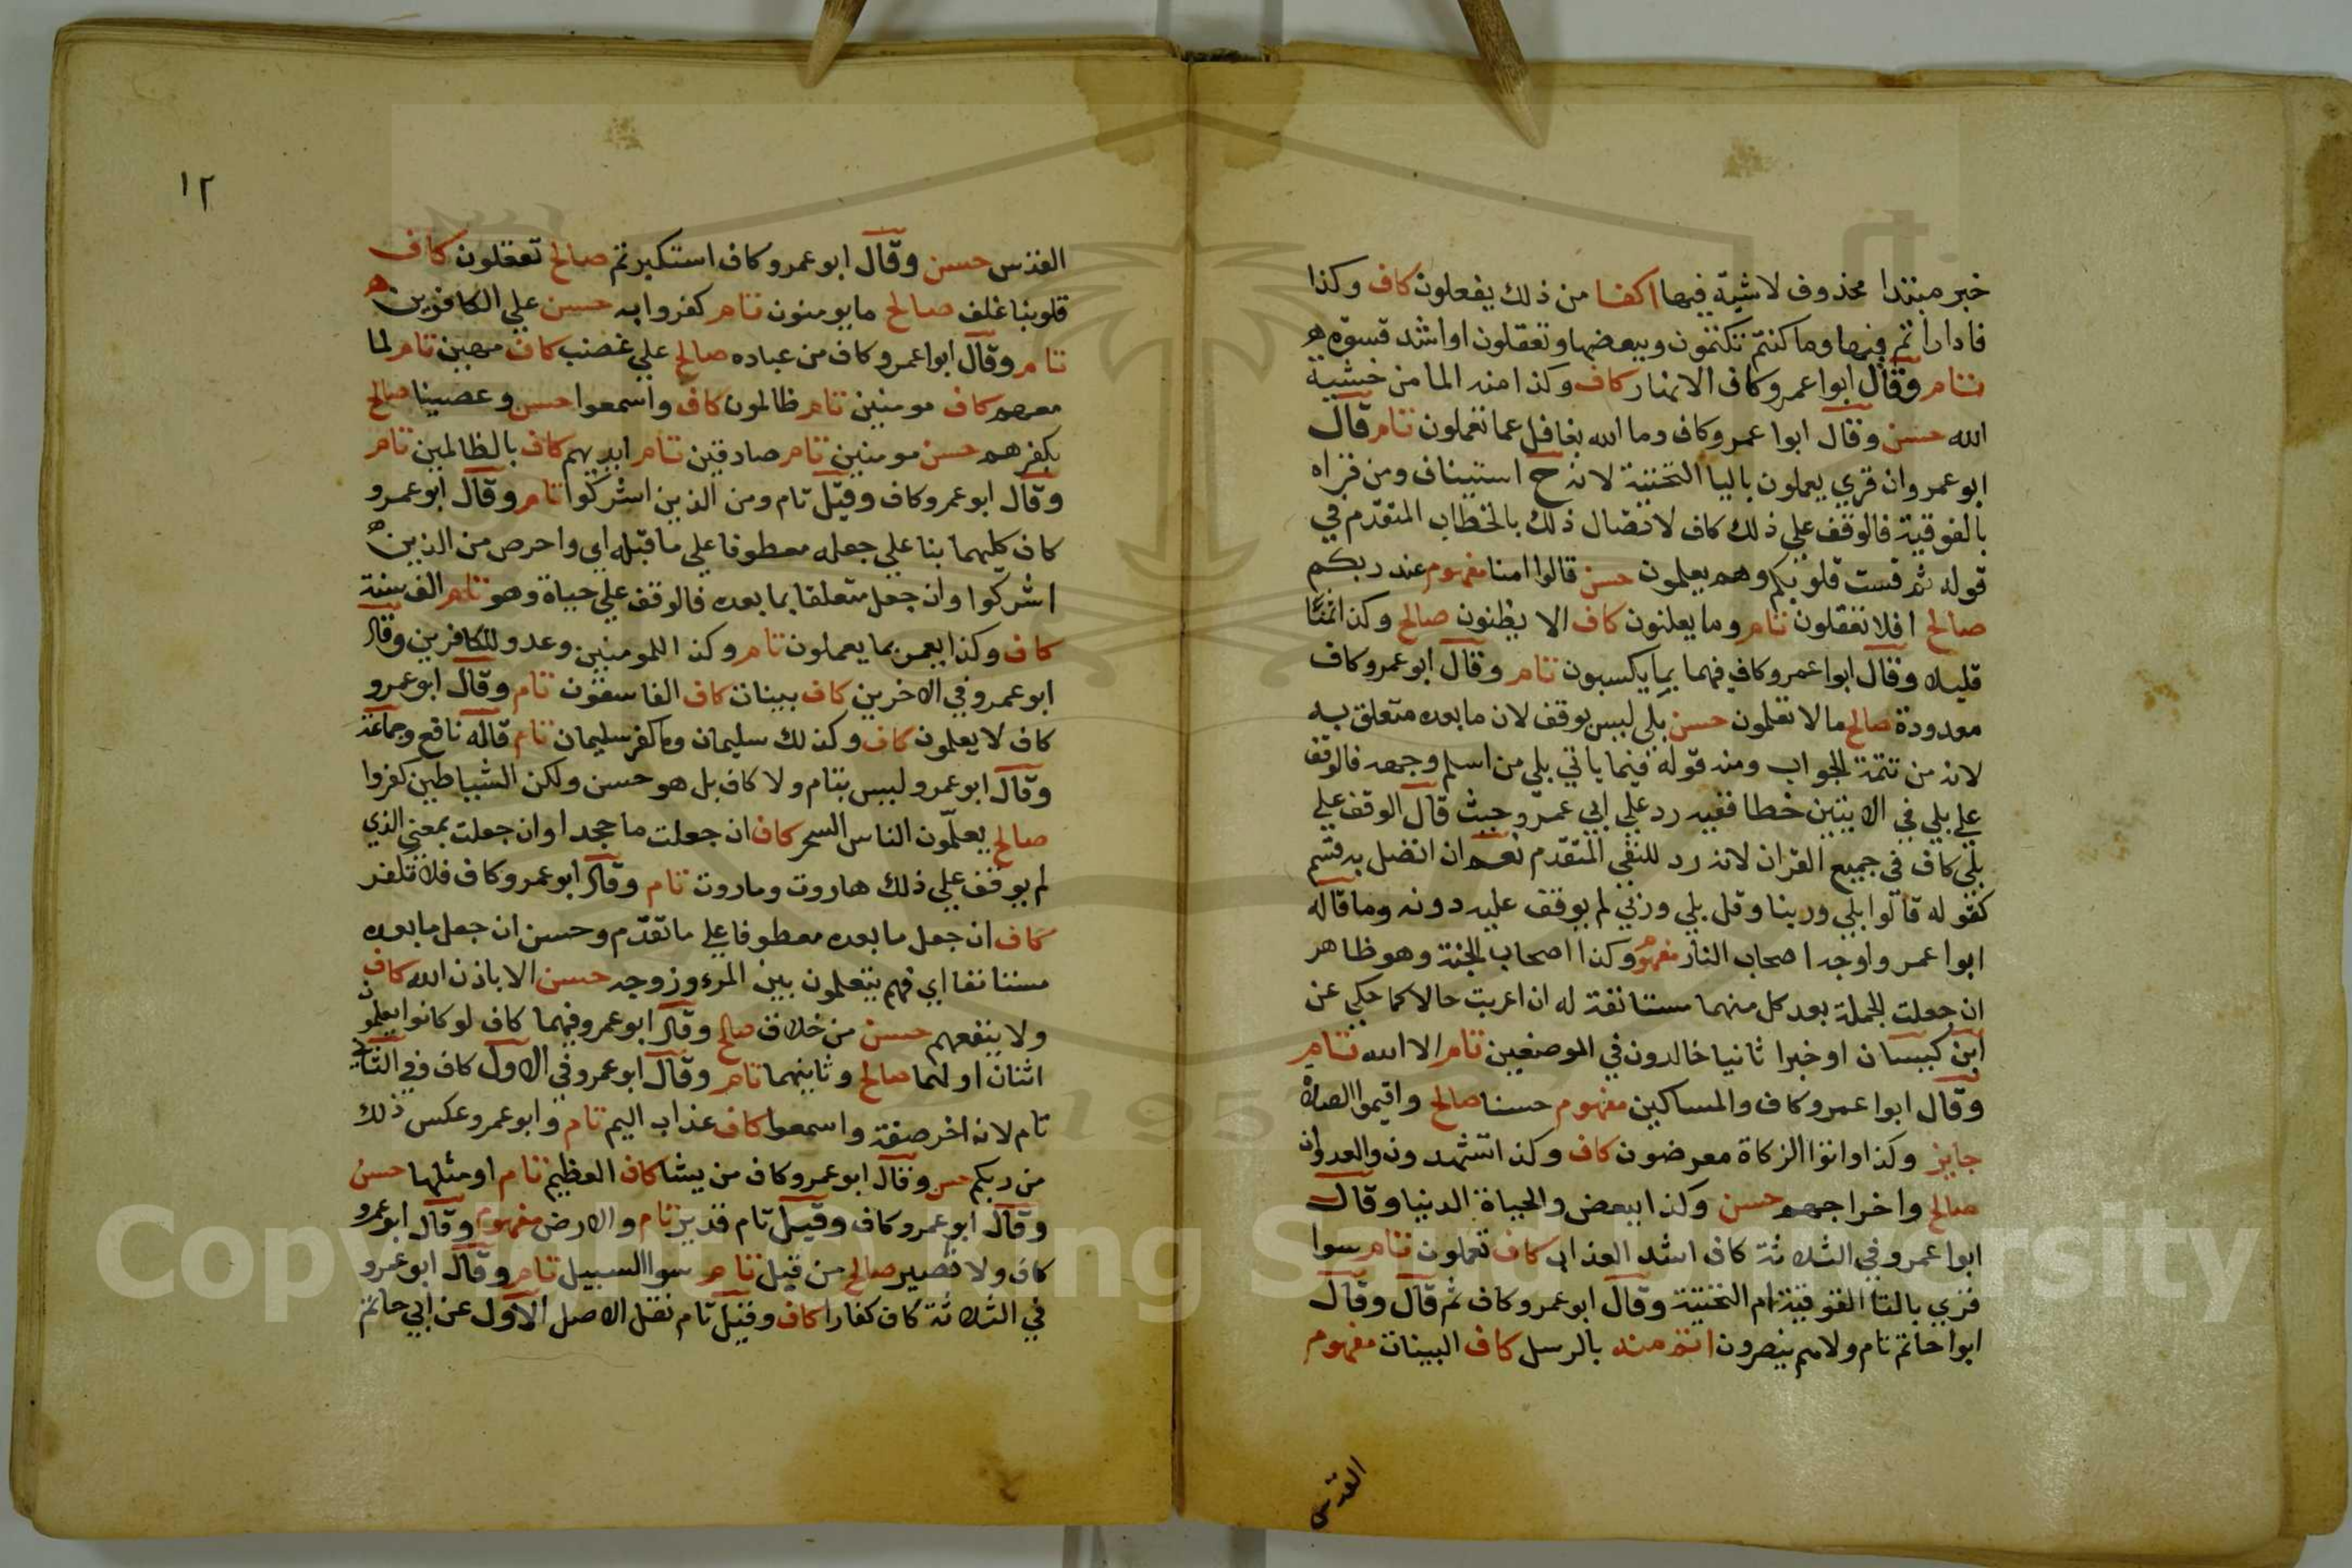 خبر مبتدا محذوف لاشية فيها اكفا من ذلك يفعلون كاف وكذا
فادارا تم فيها وما كنتم تكتمون وببعضها وتعقلون اواشد قسوة ه
تام وقال ابوا عمرو كاف الانهار كاف وكذا منه الما من خشية
الله حسن وقال ابوا عمرو كاف وما الله بغافل عما تعملون تام قال
ابو عمرو ان قري يعملون باليا التحتية لانه ح استيناف ومن قراه
بالفوقية فالوقف علي ذلك كاف لاتصال ذلك بالخطاب المتقدم في
قوله ثم قست قلوبكم وهم يعلمون حسن قالوا امنا مفهوم عند ربكم
صالح افلا تعقلون تام وما يعلنون كاف الا يظنون صالح وكذا ثمنا
قليلا وقال ابوا عمرو كاف فيهما بما يكسبون تام وقال ابو عمرو كاف
معدودة صالح ما لا تعلمون حسن بلي ليس بوقف لان ما بعده متعلق به
لانه من تتمة الجواب ومنه قوله فيما ياتي بلي من اسلم وجهه فالوقف
علي بلي في الايتين خطا ففيه رد علي ابي عمرو حيث قال الوقف علي
بلي كاف في جميع القران لانه رد للنفي المتقدم نعم ان اتصل به قسم
كقوله قالوا بلي وربنا وقل بلي وربي لم يوقف عليه دونه وما قاله
ابوا عمرو اوجه اصحاب النار مفهوم وكذا اصحاب الجنة وهو ظاهر
ان جعلت الجملة بعد كل منهما مستانفة له ان اعربت حالا كما حكي عن
ابن كيسان او خبرا ثانيا خالدون في الموضعين تام الا الله تام
وقال ابوا عمرو كاف والمساكين مفهوم حسنا صالح واقيموا الصلاة
جايز وكذا واتوا الزكاة معرضون كاف وكذا تشهدون والعدوان
صالح واخراجهم حسن وكذا ببعض والحياة الدنيا وقال
ابوا عمرو في الثلاثة كاف اشد العذاب كاف تعملون تام سوا
قري بالتا الفوقية ام التحتية وقال ابو عمرو كاف ثم قال وقال
ابوا حاتم تام ولا هم ينصرون اتم منه بالرسل كاف البينات مفهوم
القدس
١٢
القدس حسن وقال ابو عمرو كاف استكبرتم صالح تعقلون كاف
قلوبنا غلف صالح ما يومنون تام كفروا به حسن علي الكافرين ه
تام وقال ابوا عمرو كاف من عباده صالح علي غضب كاف مهين تام لما
معهم كاف مومنين تام ظالمون كاف واسمعوا حسن وعصينا صالح
بكفرهم حسن مومنين تام صادقين تام ايديهم كاف بالظالمين تام
وقال ابو عمرو كاف وقيل تام ومن الذين اشركوا تام وقال ابو عمرو
كاف كليهما بنا علي جعله معطوفا علي ما قبله اي واحرص من الذين ه
اشركوا وان جعل متعلقا بما بعده فالوقف علي حياة وهو تام الف سنة
كاف وكذا يعمر بما يعملون تام وكذا للمومنين وعدو للكافرين وقال
ابو عمرو في الاخرين كاف بينات كاف الفاسقون تام وقال ابو عمرو
كاف لا يعلمون كاف وكذلك سليمان وما كفر سليمان تام قاله نافع وجماعة
وقال ابو عمرو ليس بتام ولا كاف بل هو حسن ولكن الشياطين كفروا
صالح يعلمون الناس السحر كاف ان جعلت ما جحدا وان جعلت بمعني الذي
لم يوقف علي ذلك هاروت وماروت تام وقال ابو عمرو كاف فلا تكفر
كاف ان جعل ما بعده معطوفا علي ما تقدم وحسن ان جعل ما بعده
مستانفا اي فهم يتعلمون بين المرء وزوجه حسن الا باذن الله كاف
ولا ينفعهم حسن من خلاق صالح وقال ابو عمرو فيهما كاف لو كانوا يعلمون
اثنان اولهما صالح وثانيهما تام وقال ابو عمرو في الاول كاف وفي الثاني
تام لانه اخر صفة واسمعوا كاف عذاب اليم تام وابو عمرو عكس ذلك
من ربكم حسن وقال ابو عمرو كاف من يشا كاف العظيم تام او مثلها حسن
وقال ابو عمرو كاف وقيل تام قدير تام والارض مفهوم وقال ابو عمرو
كاف ولا نصير صالح من قبل تام سوا السبيل تام وقال ابو عمرو
في الثلاثة كاف كفارا كاف وقيل تام نقل الاصل الاول عن ابي حاتم
Copyright © King Saud University
1957